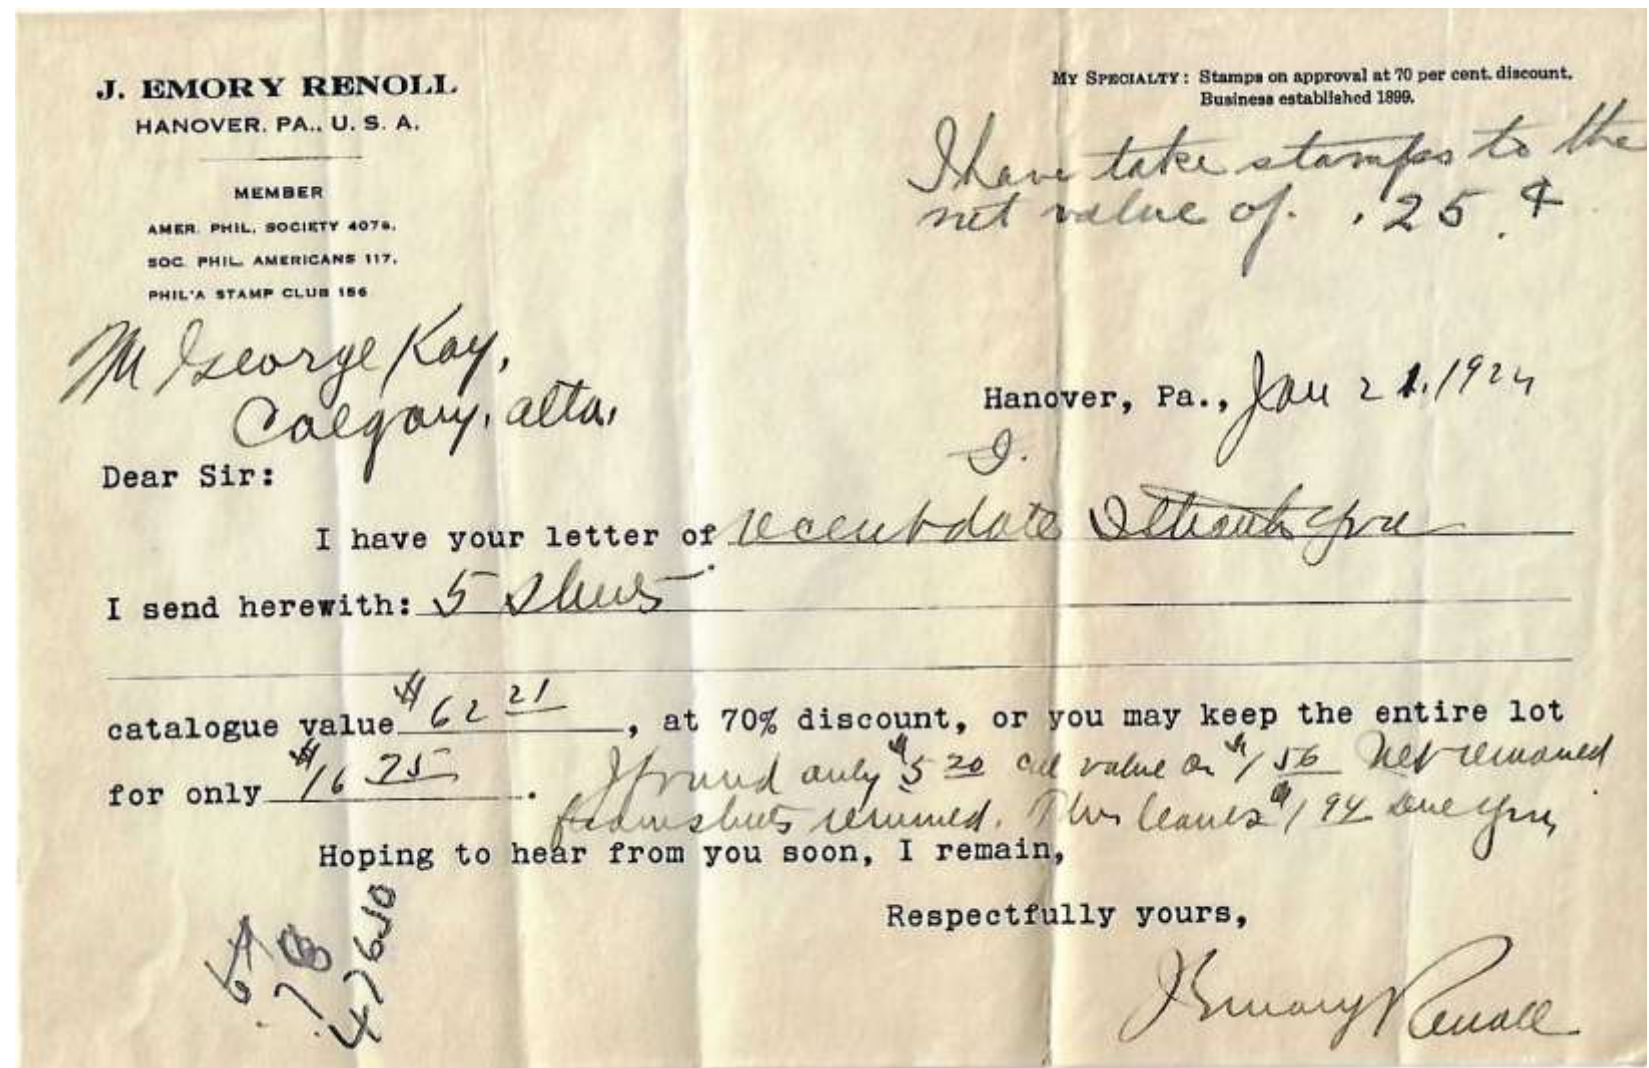 J. EMORY RENOLL
HANOVER, PA., U. S. A.
MEMBER
AMER. PHIL. SOCIETY 4076.
SOC. PHIL. AMERICANS 117.
PHIL'A STAMP CLUB 156
MY SPECIALTY: Stamps on approval at 70 per cent. discount.
Business established 1899.
I have take stamps to the
net value of. .25 ¢
M George Kay,
Calgary, Alta,
Hanover, Pa., Jan 21. 1924
Dear Sir:
I have your letter of recent date I thank you
I send herewith: 5 sheets
catalogue value $62 21, at 70% discount, or you may keep the entire lot
for only $16 75. I found only $5 20 cat value or $1 56 net removed
from sheets returned. This leaves $1 94 due you
Hoping to hear from you soon, I remain,
Respectfully yours,
J Emory Renoll